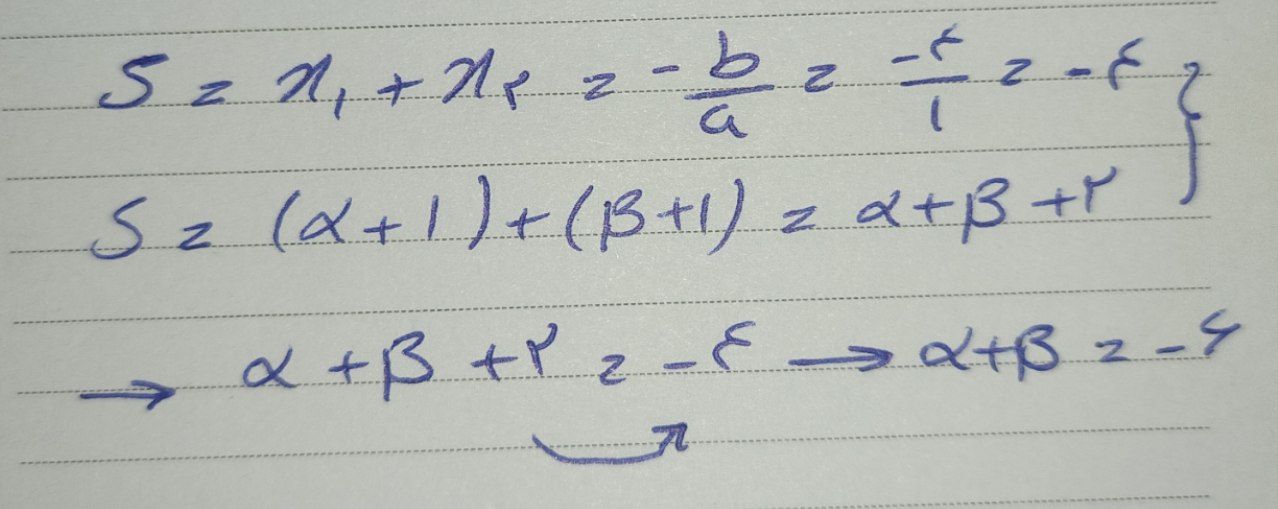 S = x₁ + x₂ = -b/a = -۴/۱ = -۴
S = (α+1)+(β+1) = α+β+۲
→ α+β+۲ = -۴ → α+β = -۶